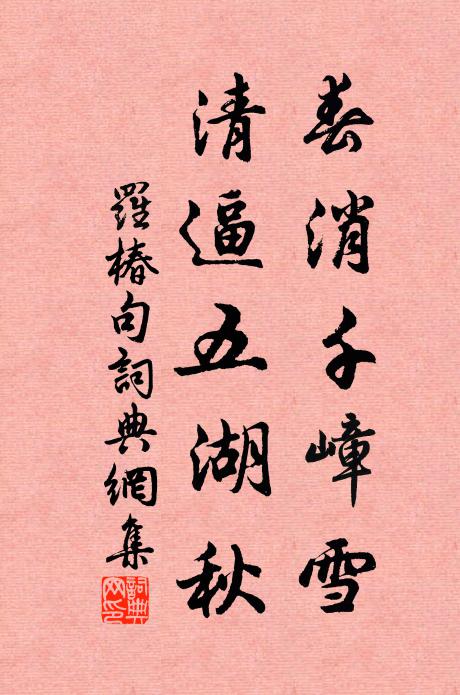 春消千嶂雪
清逼五湖秋
羅椿句詞典網集
詞典網印